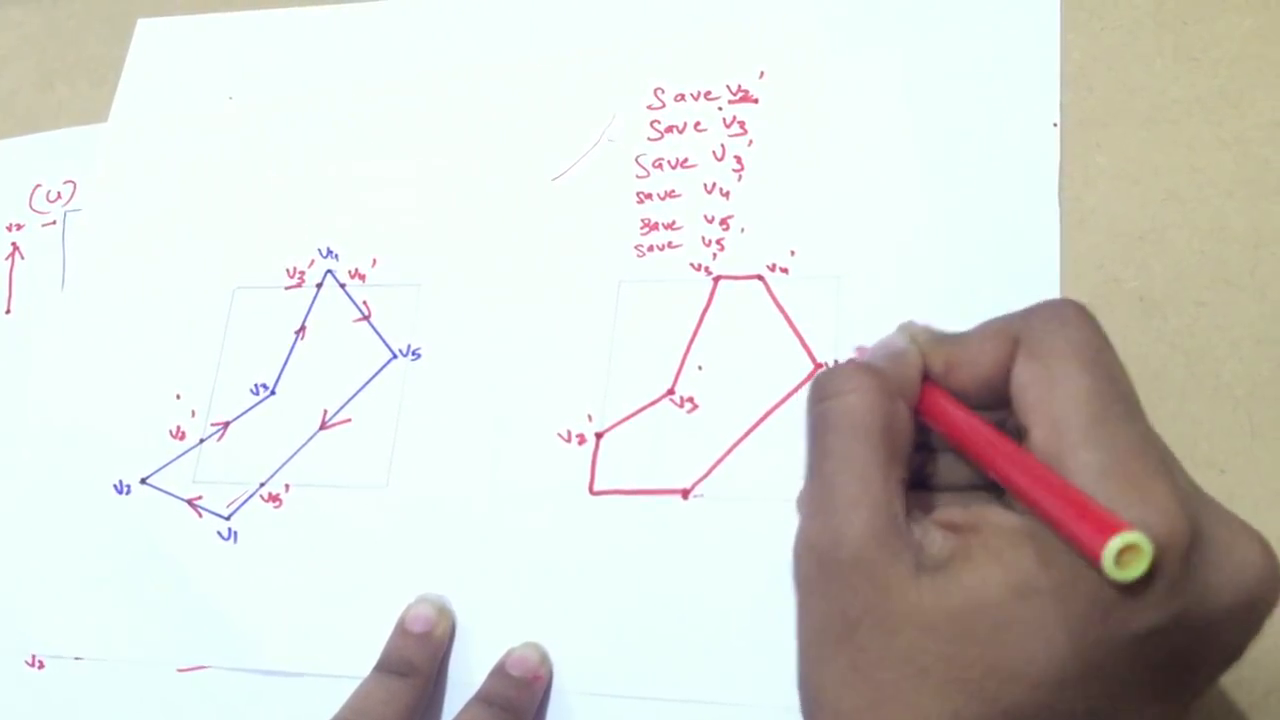 save v2'
save v3
save v3'
save v4'
save v5,
save v5'
(u)
v2
v4
v3' v4'
v5
v3
v2'
v2
v5'
v1
v3' v4'
v3
v2'
v2